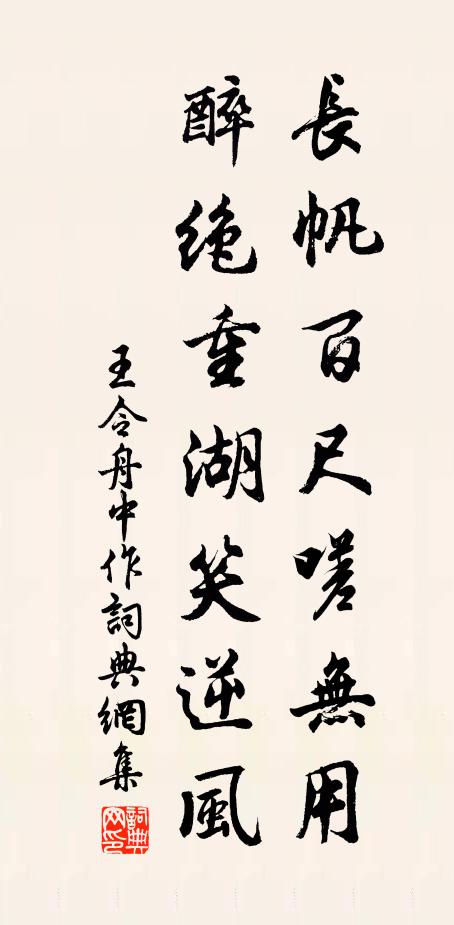 長帆百尺嗟無用
醉絶重湖笑逆風
王令舟中作詞典網集
詞典網印